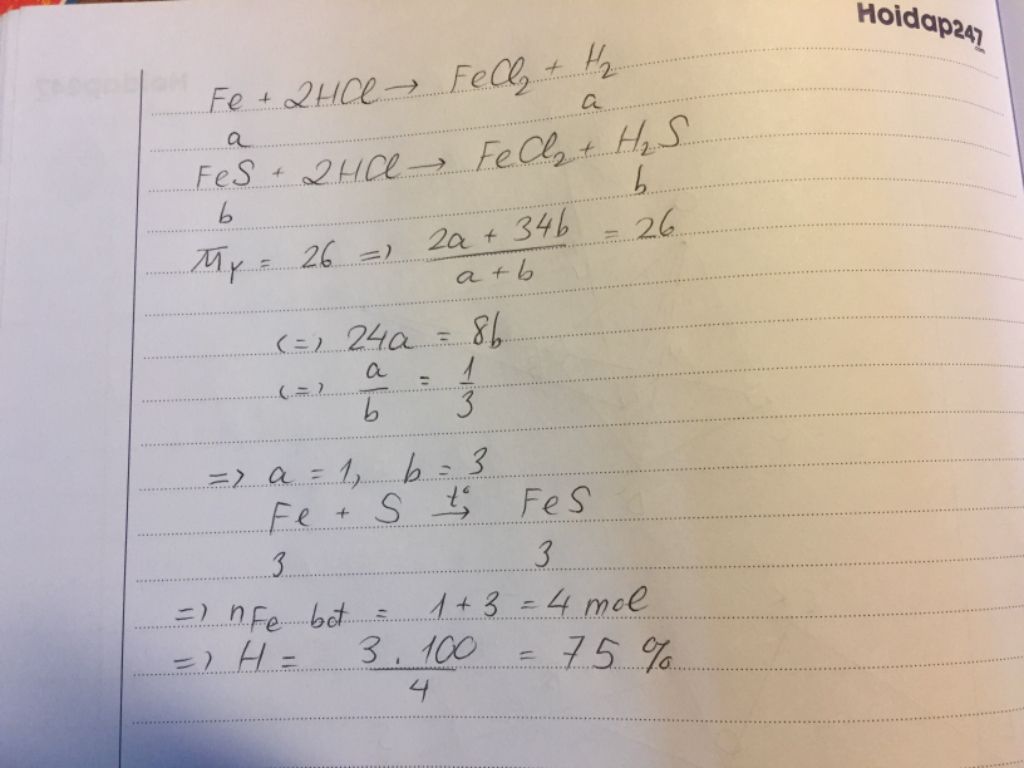 Hoidap247.com
Fe + 2HCl → FeCl₂ + H₂
a a
FeS + 2HCl → FeCl₂ + H₂S
b b
M̄Y = 26 => (2a + 34b)/(a + b) = 26
(=) 24a = 8b
(=) a/b = 1/3
=> a = 1, b = 3
Fe + S →(t°) FeS
3 3
=> nFe bđ = 1 + 3 = 4 mol
=> H = (3 . 100)/4 = 75 %